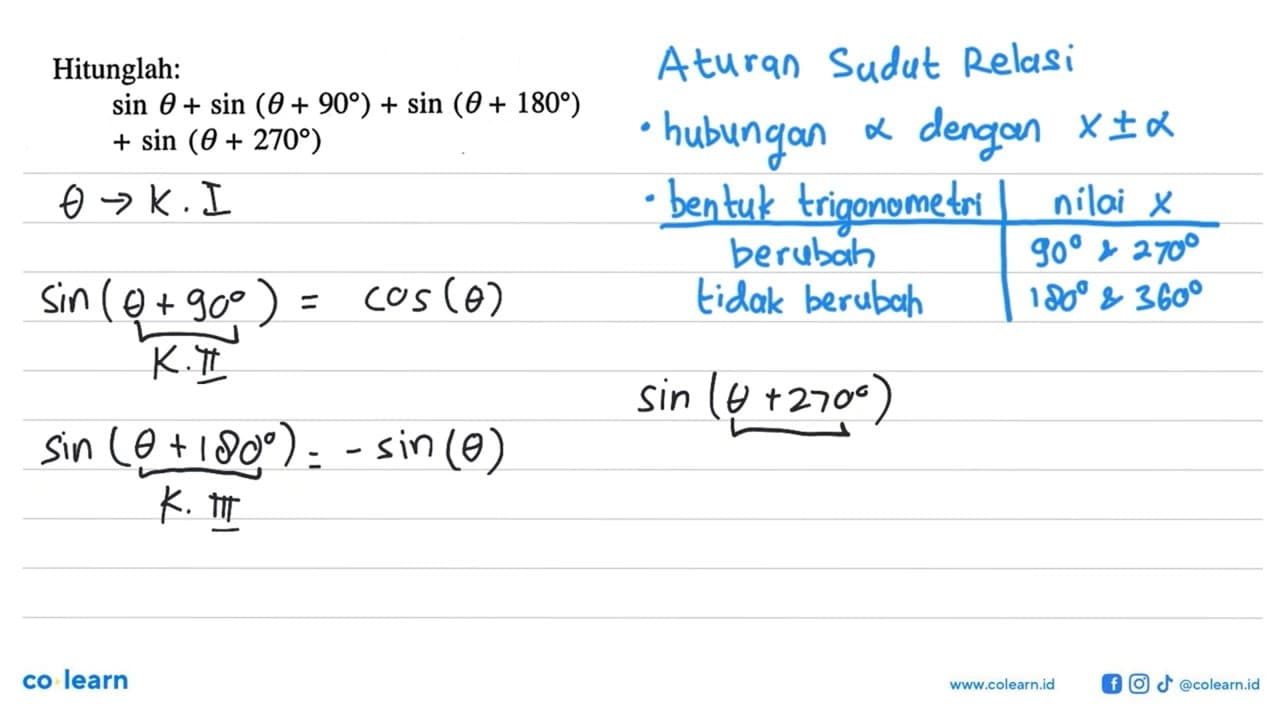 Hitunglah:
sin θ + sin (θ + 90°) + sin (θ + 180°)
+ sin (θ + 270°)
θ → K. I
sin (θ + 90°) = cos (θ)
K. II
sin (θ + 180°) = - sin (θ)
K. III
Aturan Sudut Relasi
• hubungan α dengan x ± α
• bentuk trigonometri | nilai x
berubah | 90° & 270°
tidak berubah | 180° & 360°
sin (θ + 270°)
co learn
www.colearn.id
@colearn.id